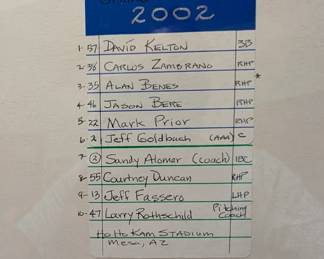 2002
1- 57 DAVID KELTON 3B
2- 38 CARLOS ZAMBRANO RHP
3- 35 ALAN BENES RHP *
4- 46 JASON BERE RHP
5- 22 MARK PRIOR RHP
6- 2 Jeff Goldbach (AAA) C
7- 2 Sandy Alomar (coach) IBC
8- 55 Courtney Duncan RHP
9- 13 Jeff Fassero LHP
10- 47 Larry Rothschild Pitching Coach
HoHoKam STADIUM
Mesa, AZ